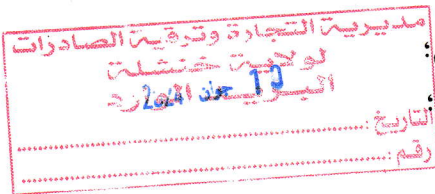 مديرية التجارة وترقية الصادرات
لولاية خنشلة
البريد الوارد
التاريخ :
رقم :